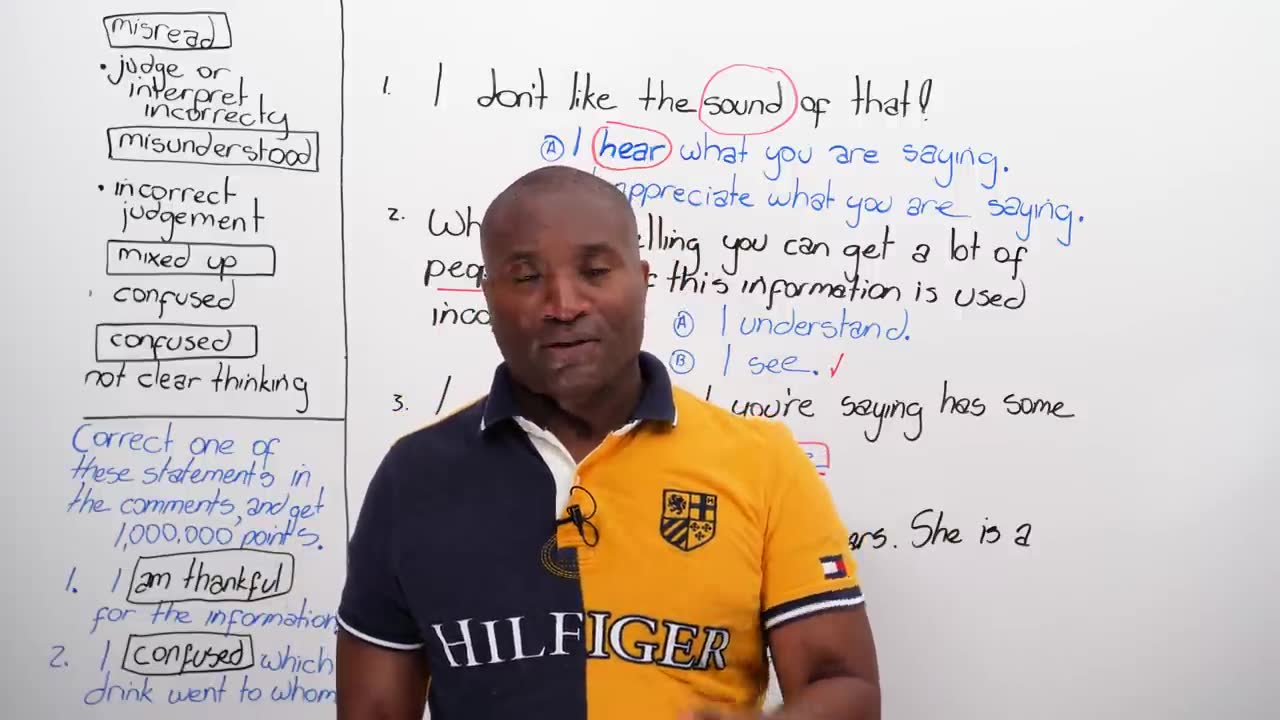 misread
• judge or
interpret
incorrecty
misunderstood
• incorrect
judgement
mixed up
confused
confused
not clear thinking
Correct one of
these statements in
the comments, and get
1,000,000 points.
1. I am thankful
for the information
2. I confused which
drink went to whom
1. I don't like the sound of that!
Ⓐ I hear what you are saying.
appreciate what you are saying.
2. you can get a lot of
this information is used
Ⓐ I understand.
Ⓑ I see. ✓
3. I you're saying has some
She is a
HILFIGER